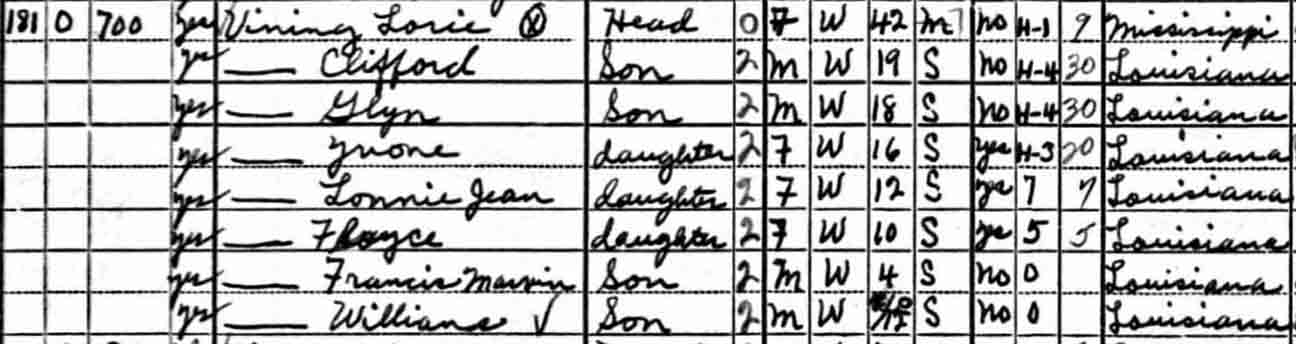 181 O 700 yes Vining Lorie Ⓧ Head 0 F W 42 M 7 no H-1 9 Mississippi
yes — Clifford Son 2 M W 19 S no H-4 30 Louisiana
yes — Glyn Son 2 M W 18 S no H-4 30 Louisiana
yes — Yvone daughter 2 F W 16 S yes H-3 20 Louisiana
yes — Lonnie Jean daughter 2 F W 12 S yes 7 7 Louisiana
yes — Floyce daughter 2 F W 10 S yes 5 5 Louisiana
yes — Francis Marvin Son 2 M W 4 S no 0 Louisiana
yes — William √ Son 2 M W S no 0 Louisiana